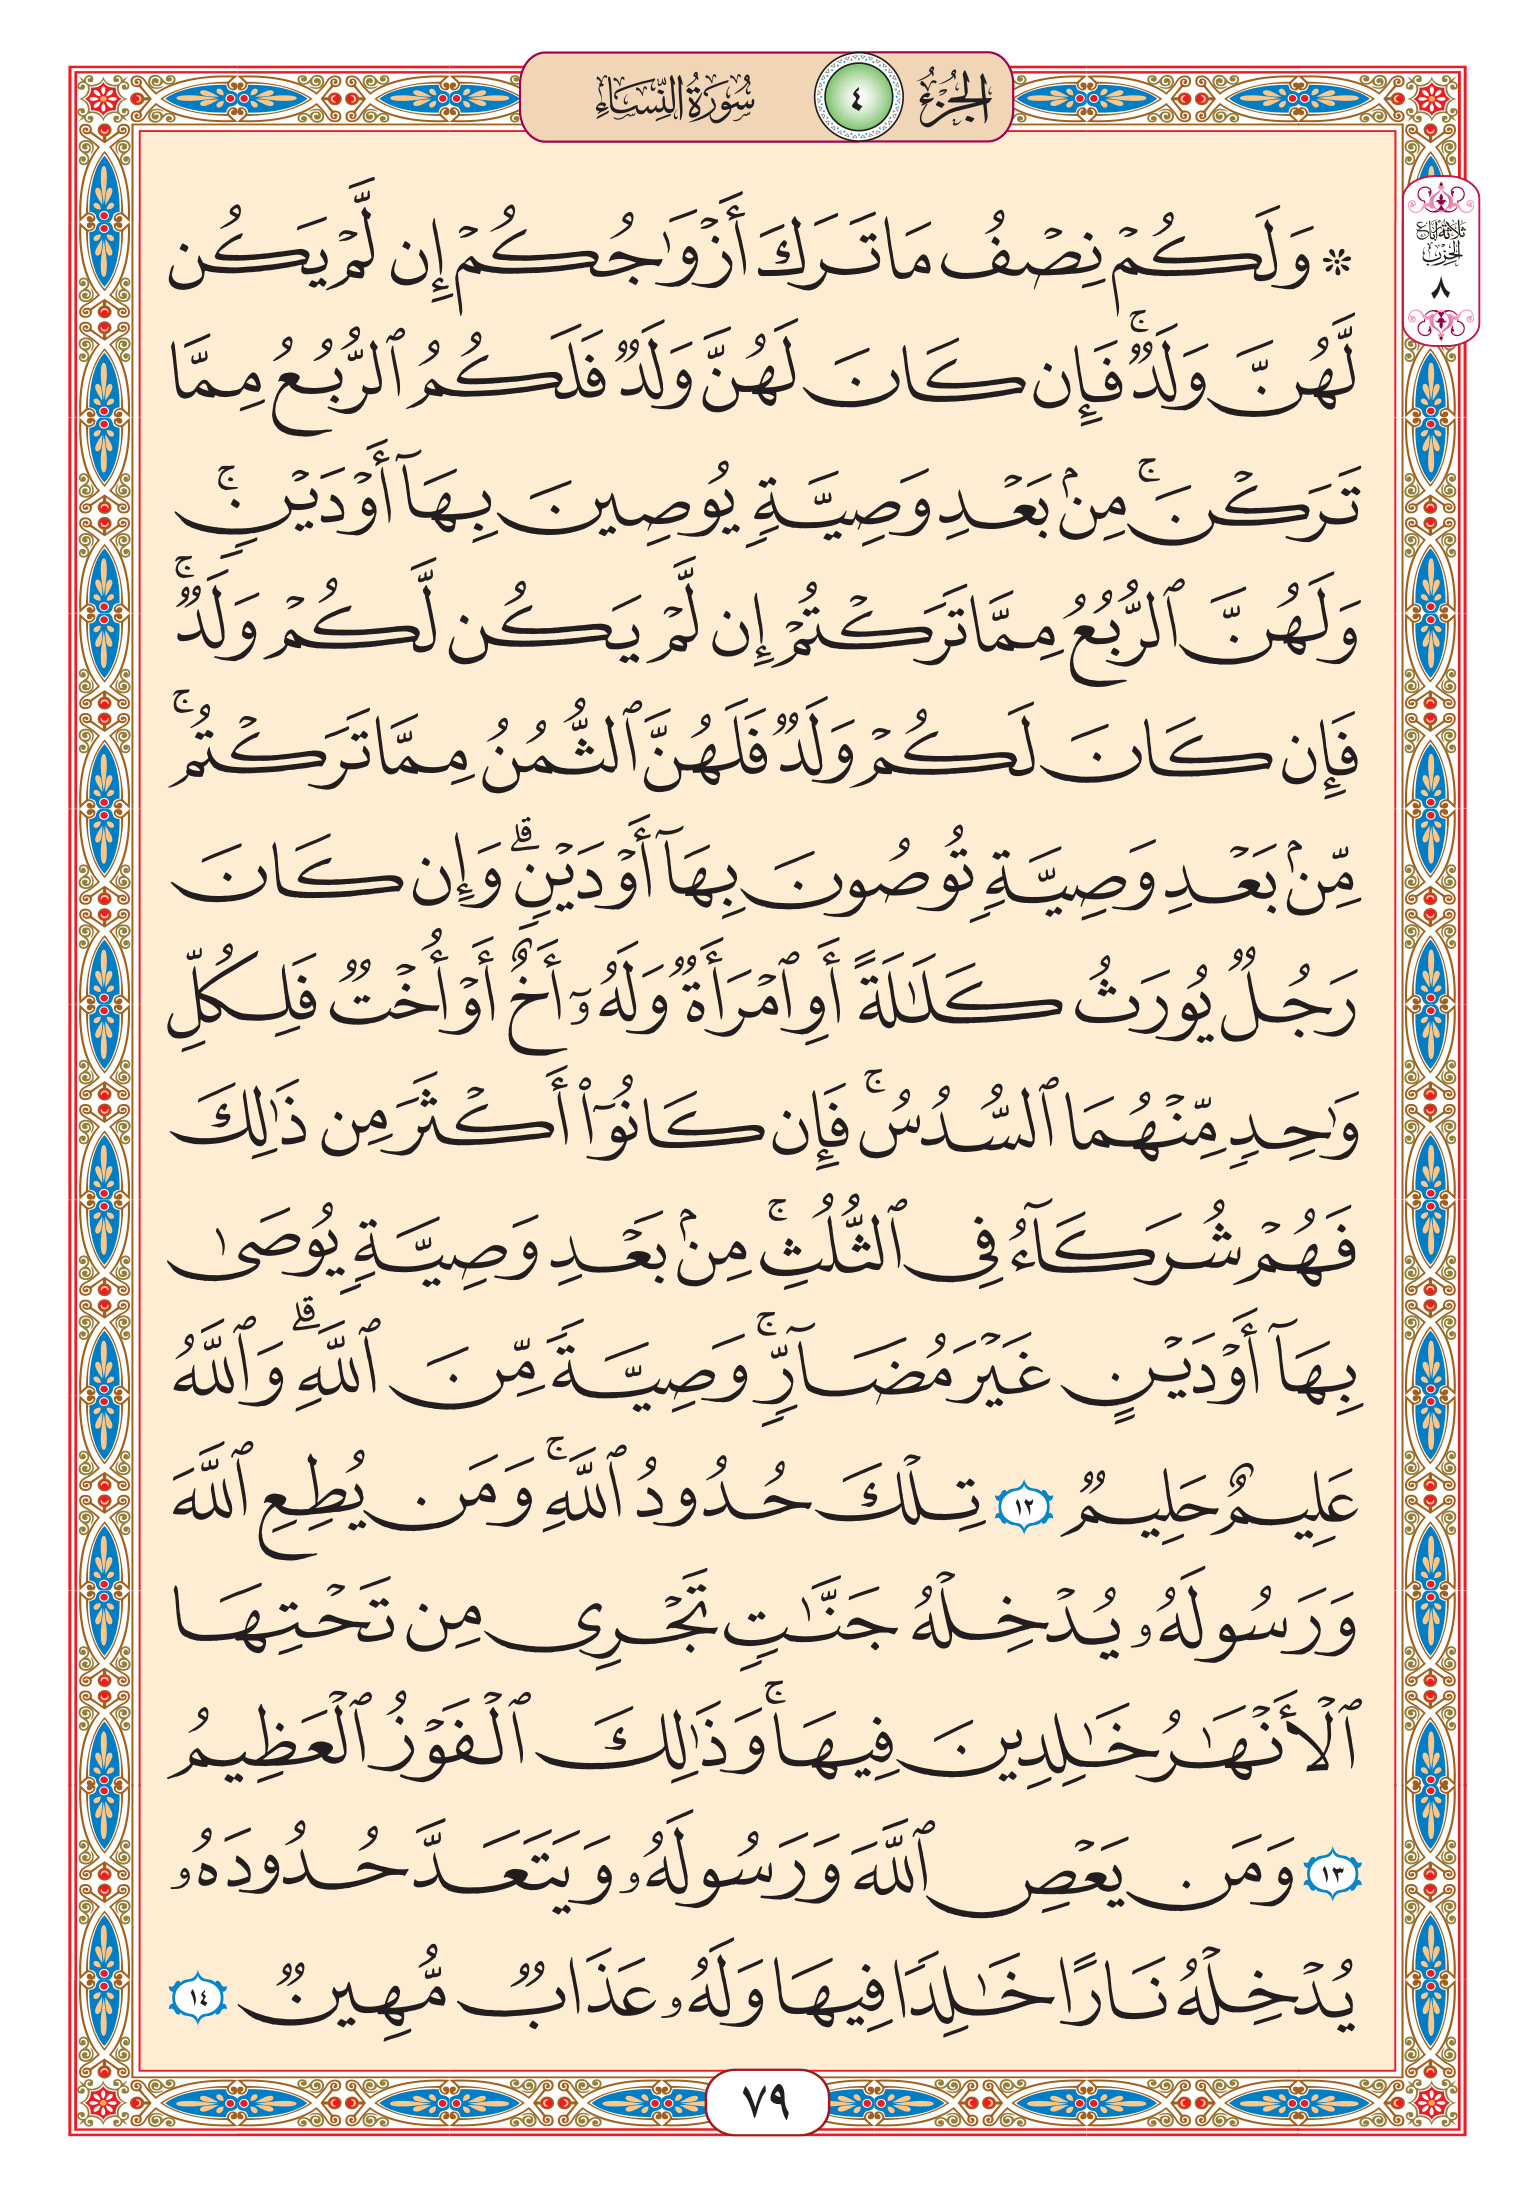 الجزء ٤ سورة النساء
ثلاثة أرباع
الحزب
٨
۞ وَلَكُمْ نِصْفُ مَا تَرَكَ أَزْوَٰجُكُمْ إِن لَّمْ يَكُن
لَّهُنَّ وَلَدٌۭ ۚ فَإِن كَانَ لَهُنَّ وَلَدٌۭ فَلَكُمُ ٱلرُّبُعُ مِمَّا
تَرَكْنَ ۚ مِنۢ بَعْدِ وَصِيَّةٍۢ يُوصِينَ بِهَآ أَوْ دَيْنٍۢ ۚ
وَلَهُنَّ ٱلرُّبُعُ مِمَّا تَرَكْتُمْ إِن لَّمْ يَكُن لَّكُمْ وَلَدٌۭ ۚ
فَإِن كَانَ لَكُمْ وَلَدٌۭ فَلَهُنَّ ٱلثُّمُنُ مِمَّا تَرَكْتُم ۚ
مِّنۢ بَعْدِ وَصِيَّةٍۢ تُوصُونَ بِهَآ أَوْ دَيْنٍۢ ۗ وَإِن كَانَ
رَجُلٌۭ يُورَثُ كَلَٰلَةً أَوِ ٱمْرَأَةٌۭ وَلَهُۥٓ أَخٌ أَوْ أُخْتٌۭ فَلِكُلِّ
وَٰحِدٍۢ مِّنْهُمَا ٱلسُّدُسُ ۚ فَإِن كَانُوٓا۟ أَكْثَرَ مِن ذَٰلِكَ
فَهُمْ شُرَكَآءُ فِى ٱلثُّلُثِ ۚ مِنۢ بَعْدِ وَصِيَّةٍۢ يُوصَىٰ
بِهَآ أَوْ دَيْنٍ غَيْرَ مُضَآرٍّۢ ۚ وَصِيَّةًۭ مِّنَ ٱللَّهِ ۗ وَٱللَّهُ
عَلِيمٌ حَلِيمٌۭ ١٢ تِلْكَ حُدُودُ ٱللَّهِ ۚ وَمَن يُطِعِ ٱللَّهَ
وَرَسُولَهُۥ يُدْخِلْهُ جَنَّٰتٍۢ تَجْرِى مِن تَحْتِهَا
ٱلْأَنْهَٰرُ خَٰلِدِينَ فِيهَا ۚ وَذَٰلِكَ ٱلْفَوْزُ ٱلْعَظِيمُ
١٣ وَمَن يَعْصِ ٱللَّهَ وَرَسُولَهُۥ وَيَتَعَدَّ حُدُودَهُۥ
يُدْخِلْهُ نَارًا خَٰلِدًۭا فِيهَا وَلَهُۥ عَذَابٌۭ مُّهِينٌۭ ١٤
٧٩